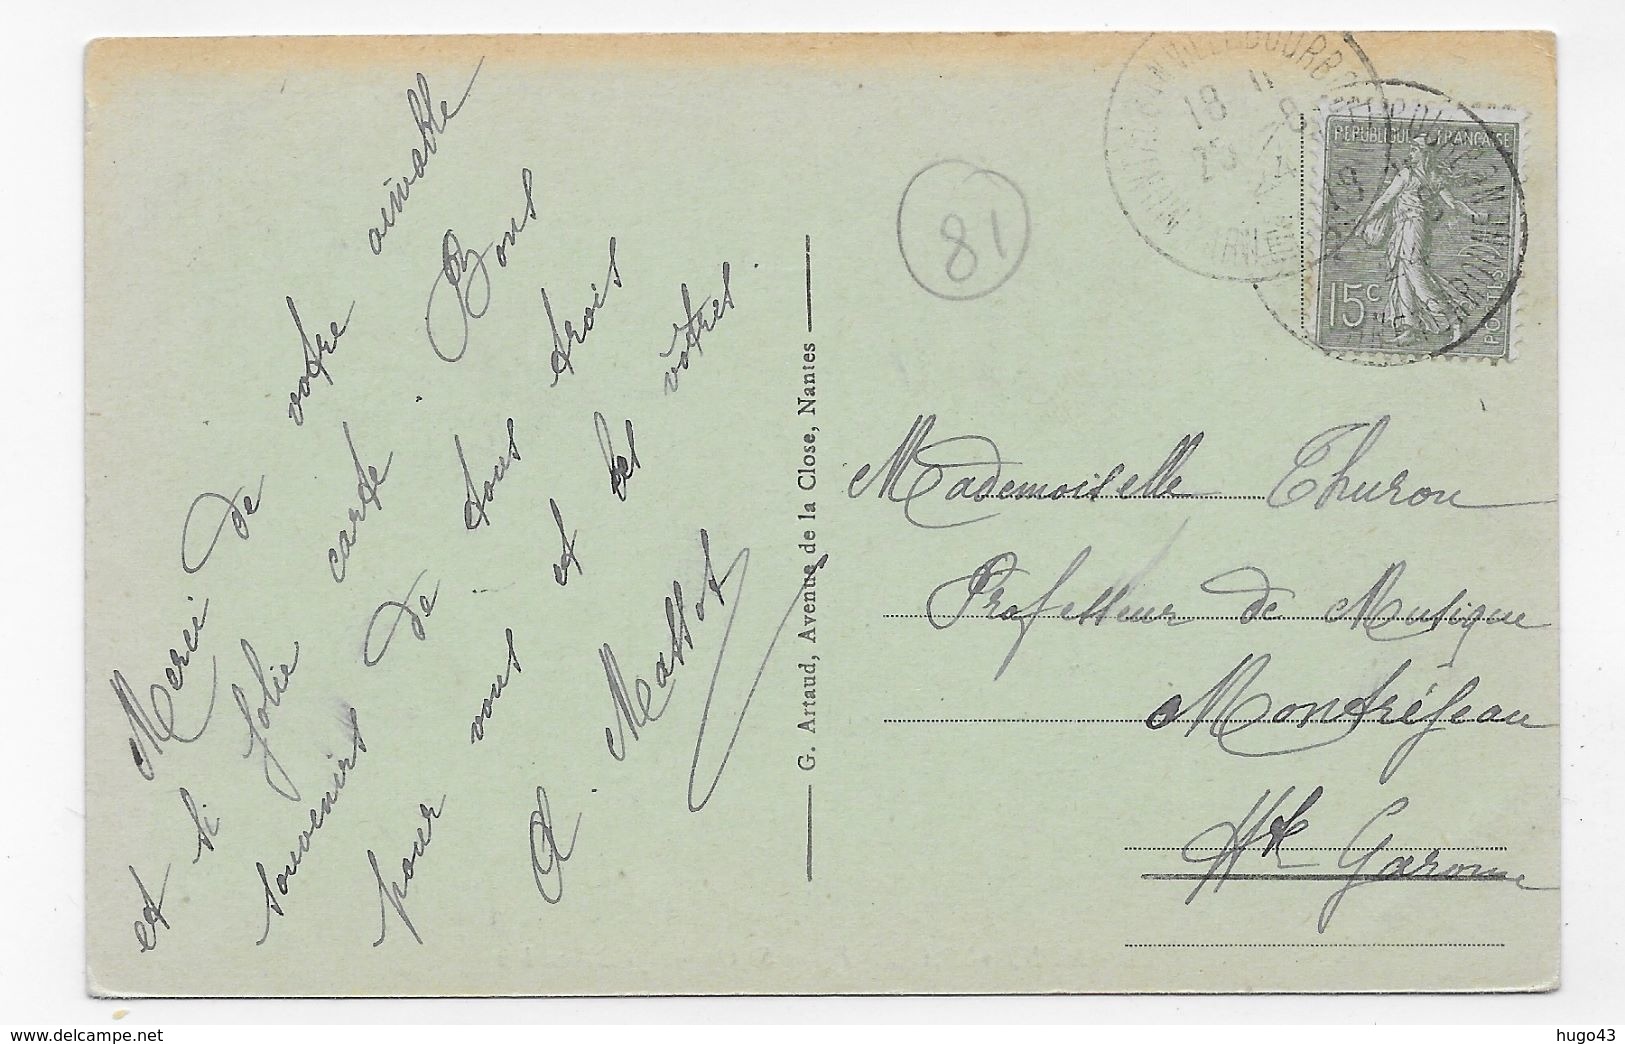 Merci de votre aimable
et si jolie carte Bons
souvenirs de tous trois
pour vous et les vôtres.
A. Massot
G. Artaud, Avenue de la Close, Nantes
81
MONTAUBAN VILLEBOURBON
18
TARN
RÉPUBLIQUE FRANÇAISE
15c
POSTES
Mademoiselle Thuron
Professeur de Musique
Montréjeau
Hte Garonne
delcampe.net
hugo43